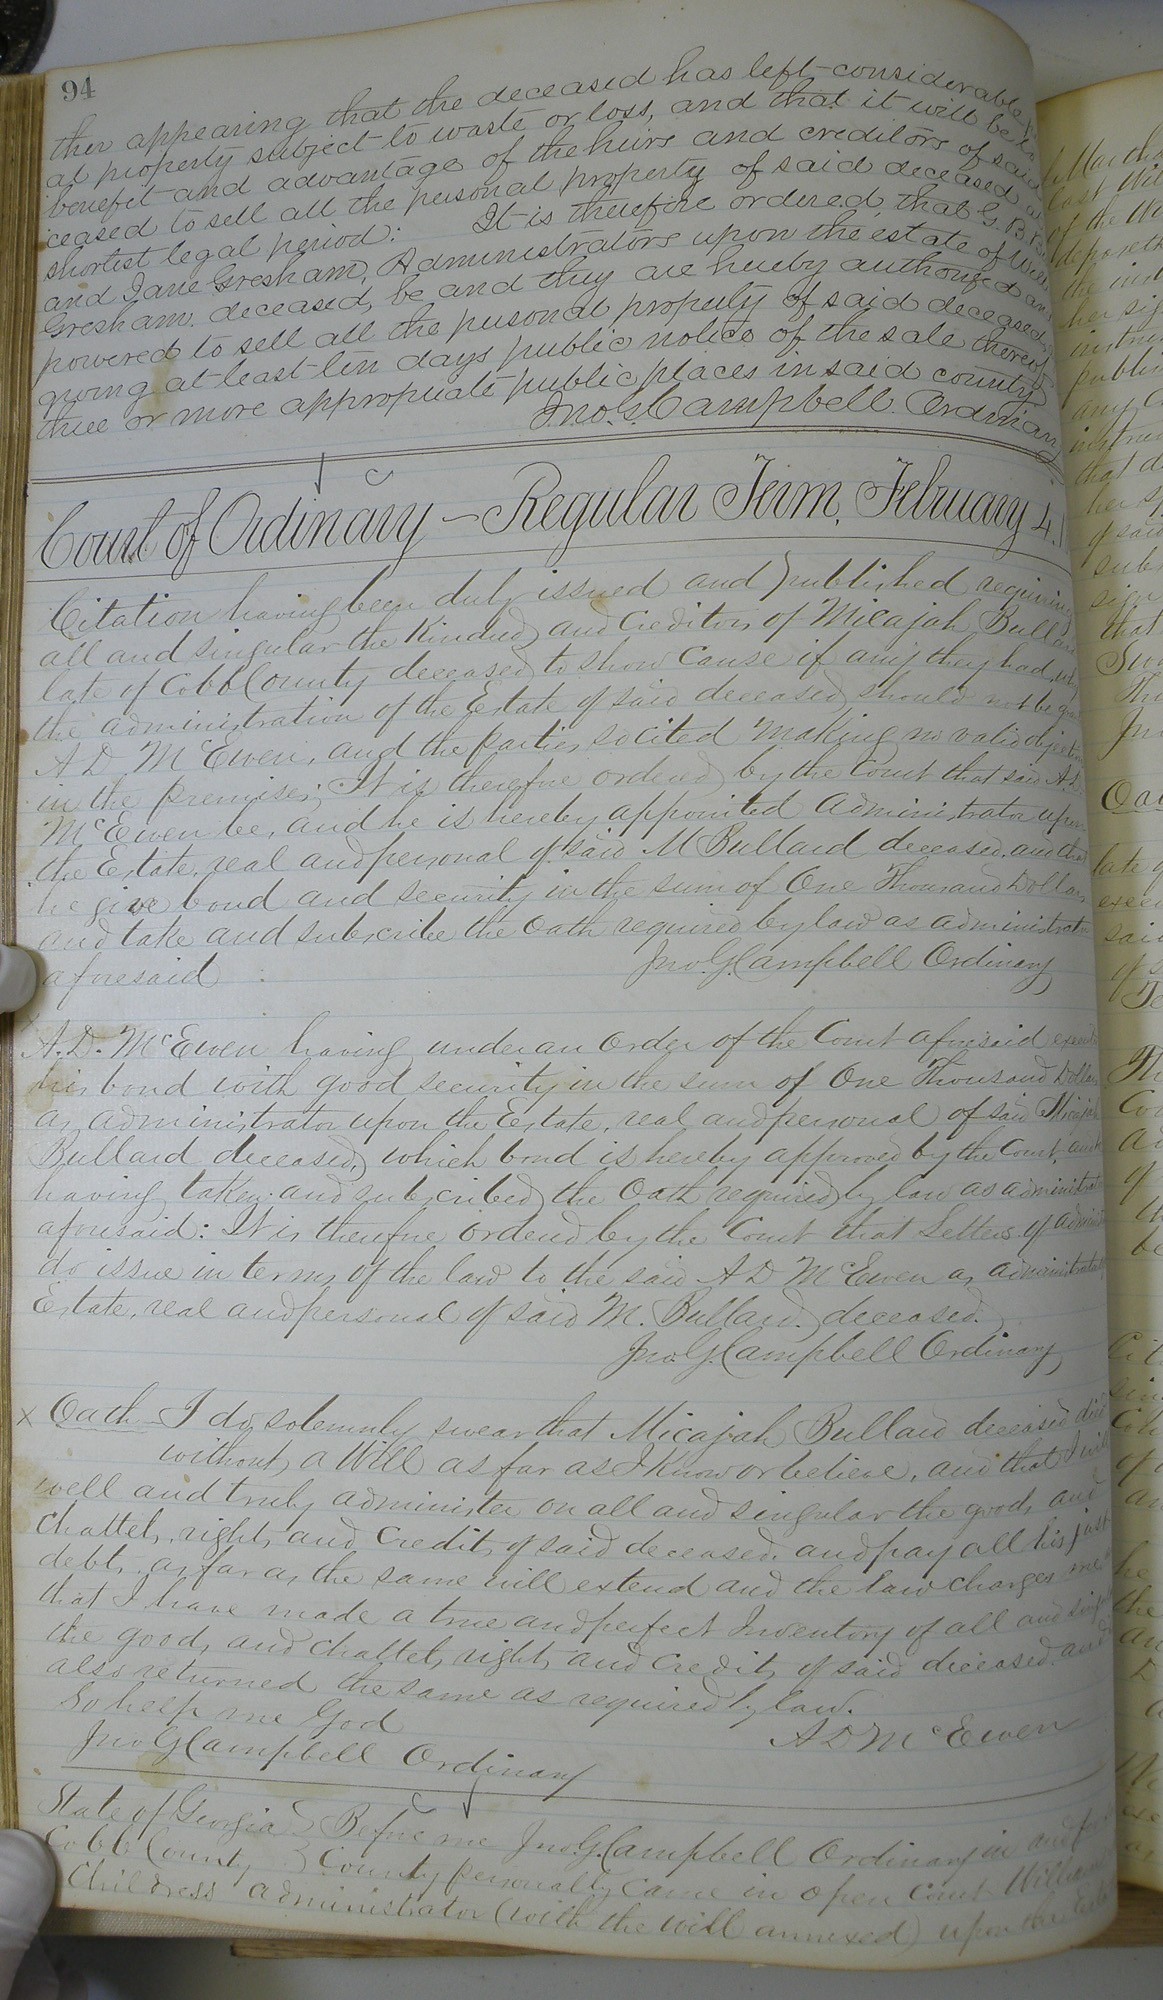 94
ther appearing that the deceased has left considerable
al property subject to waste or loss, and that it will be to
benefit and advantage of the heirs and creditors of said
ceased to sell all the personal property of said deceased, at
shortest legal period: It is therefore ordered, that G. B. B
and Jane Gresham, Administrators upon the estate of Will
Gresham. deceased, be and they are hereby authorized and
powered to sell all the personal property of said deceased,
giving at least ten days public notice of the sale thereof
three or more appropriate public places in said county
Jno. G. Campbell. Ordinary
Court of Ordinary - Regular Term, February 4. 1
Citation having been duly issued and published requiring
all and singular the Kindred and Creditors of Micajah Bullard
late of Cobb County deceased to show Cause if any they had, why
the administration of the Estate of said deceased should not be
A D McEwen, and the parties so cited making no valid objection
in the premises; It is therefore ordered by the Court that said A. D.
McEwen be, and he is hereby appointed administrator upon
the Estate, real and personal of said M Bullard deceased, and that
he give bond and security in the sum of One Thousand Dollars
and take and subscribe the oath required by law as administrator
aforesaid Jno. G. Campbell Ordinary
x
A. D. McEwen having under an order of the Court aforesaid
his bond with good security in the sum of One Thousand Dollars
as administrator upon the Estate, real and personal of said Micajah
Bullard deceased, which bond is hereby approved by the Court, and
having taken and subscribed the oath required by law as administrator
aforesaid: It is therefore ordered by the Court that Letters of
do issue in terms of the law to the said A D McEwen as administrator
Estate, real and personal of said M. Bullard, deceased.
Jno. G. Campbell Ordinary
x Oath I do solemnly swear that Micajah Bullard deceased died
without a Will as far as I know or believe, and that I will
well and truly administer on all and singular the goods and
Chattels, rights and Credits of said deceased. and pay all his just
debts, as far as the same will extend and the law charges me
that I have made a true and perfect Inventory of all and
the goods and chattels, rights and Credits of said deceased and
also returned the same as required by law.
So help me God A D McEwen
Jno G Campbell Ordinary
State of Georgia } Before me Jno. G. Campbell Ordinary in and for
Cobb County } County personally came in open Court William
Childress administrator (with the will annexed) upon the